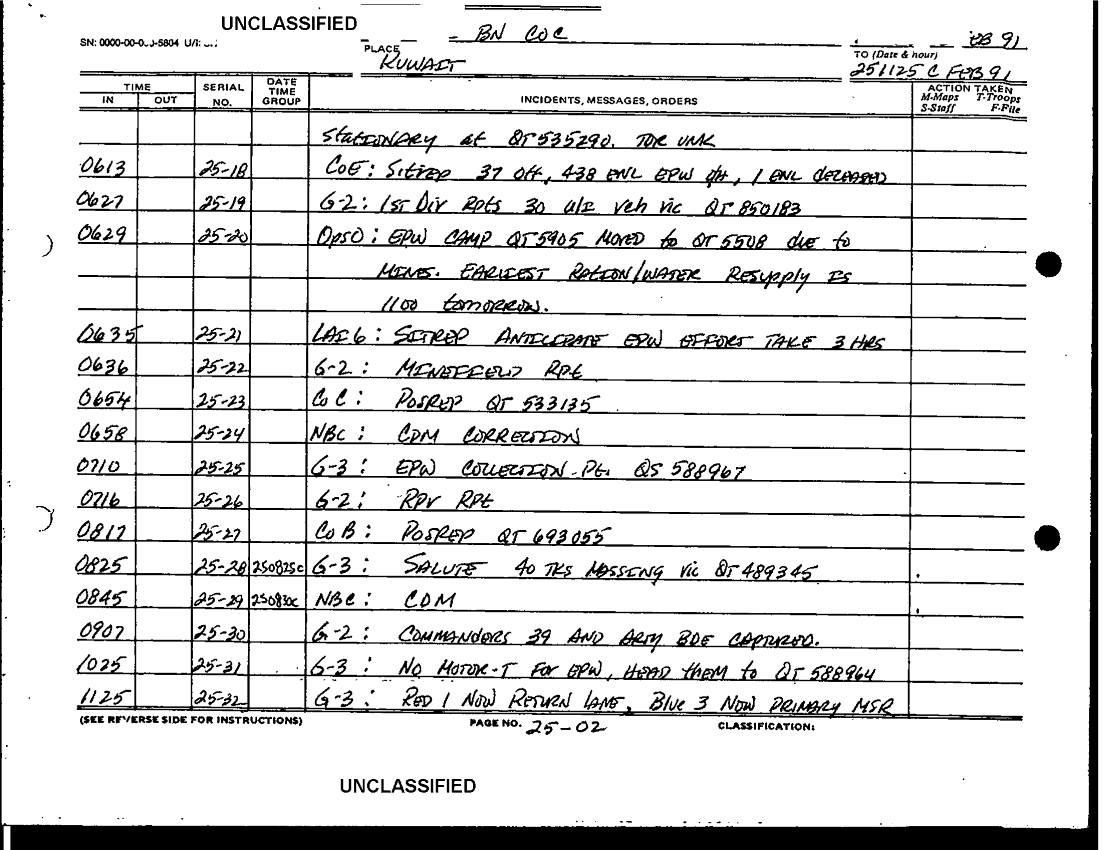 UNCLASSIFIED
BN COC
SN: 0000-00-0 -5804 U/I:
PLACE
KUWAIT
B 91
TO (Date & hour)
251125 C FEB 91
TIME
IN OUT
SERIAL NO.
DATE TIME GROUP
INCIDENTS, MESSAGES, ORDERS
ACTION TAKEN
M-Maps T-Troops
S-Staff F-File
STATIONARY at QT 535290. TOR UNK
0613 25-18 CoE: SITREP 37 Off, 438 ENL EPW , 1 ENL DECEASED
0627 25-19 G-2: 1ST Div Rpts 30 U/I Veh Vic QT 850183
0629 25-20 OpsO: EPW CAMP QT5905 MOVED to QT 5508 due to
MINES. EARLIEST RATION/WATER RESupply IS
1100 tomorrow.
0635 25-21 LAI 6: SITREP ANTICIPATE EPW EFFORT TAKE 3 HRS
0636 25-22 G-2: MINEFIELD RPt
0654 25-23 Co C: POSREP QT 533135
0658 25-24 NBC: CDM CORRECTION
0710 25-25 G-3: EPW COLLECTION Pt. QS 588967
0716 25-26 G-2: RPV RPt
0817 25-27 Co B: POSREP QT 693055
0825 25-28 250825c G-3: SALUTE 40 TKS MASSING Vic QT 489345
0845 25-29 250830c NBC: CDM
0907 25-30 G-2: COMMANDERS 39 AND ARTY BDE CAPTURED.
1025 25-31 G-3: NO MOTOR-T For EPW, HEAD them to QT 588964
1125 25-32 G-3: RED 1 NOW RETURN LANE, Blue 3 NOW PRIMARY MSR
(SEE REVERSE SIDE FOR INSTRUCTIONS)
PAGE NO. 25-02
CLASSIFICATION:
UNCLASSIFIED